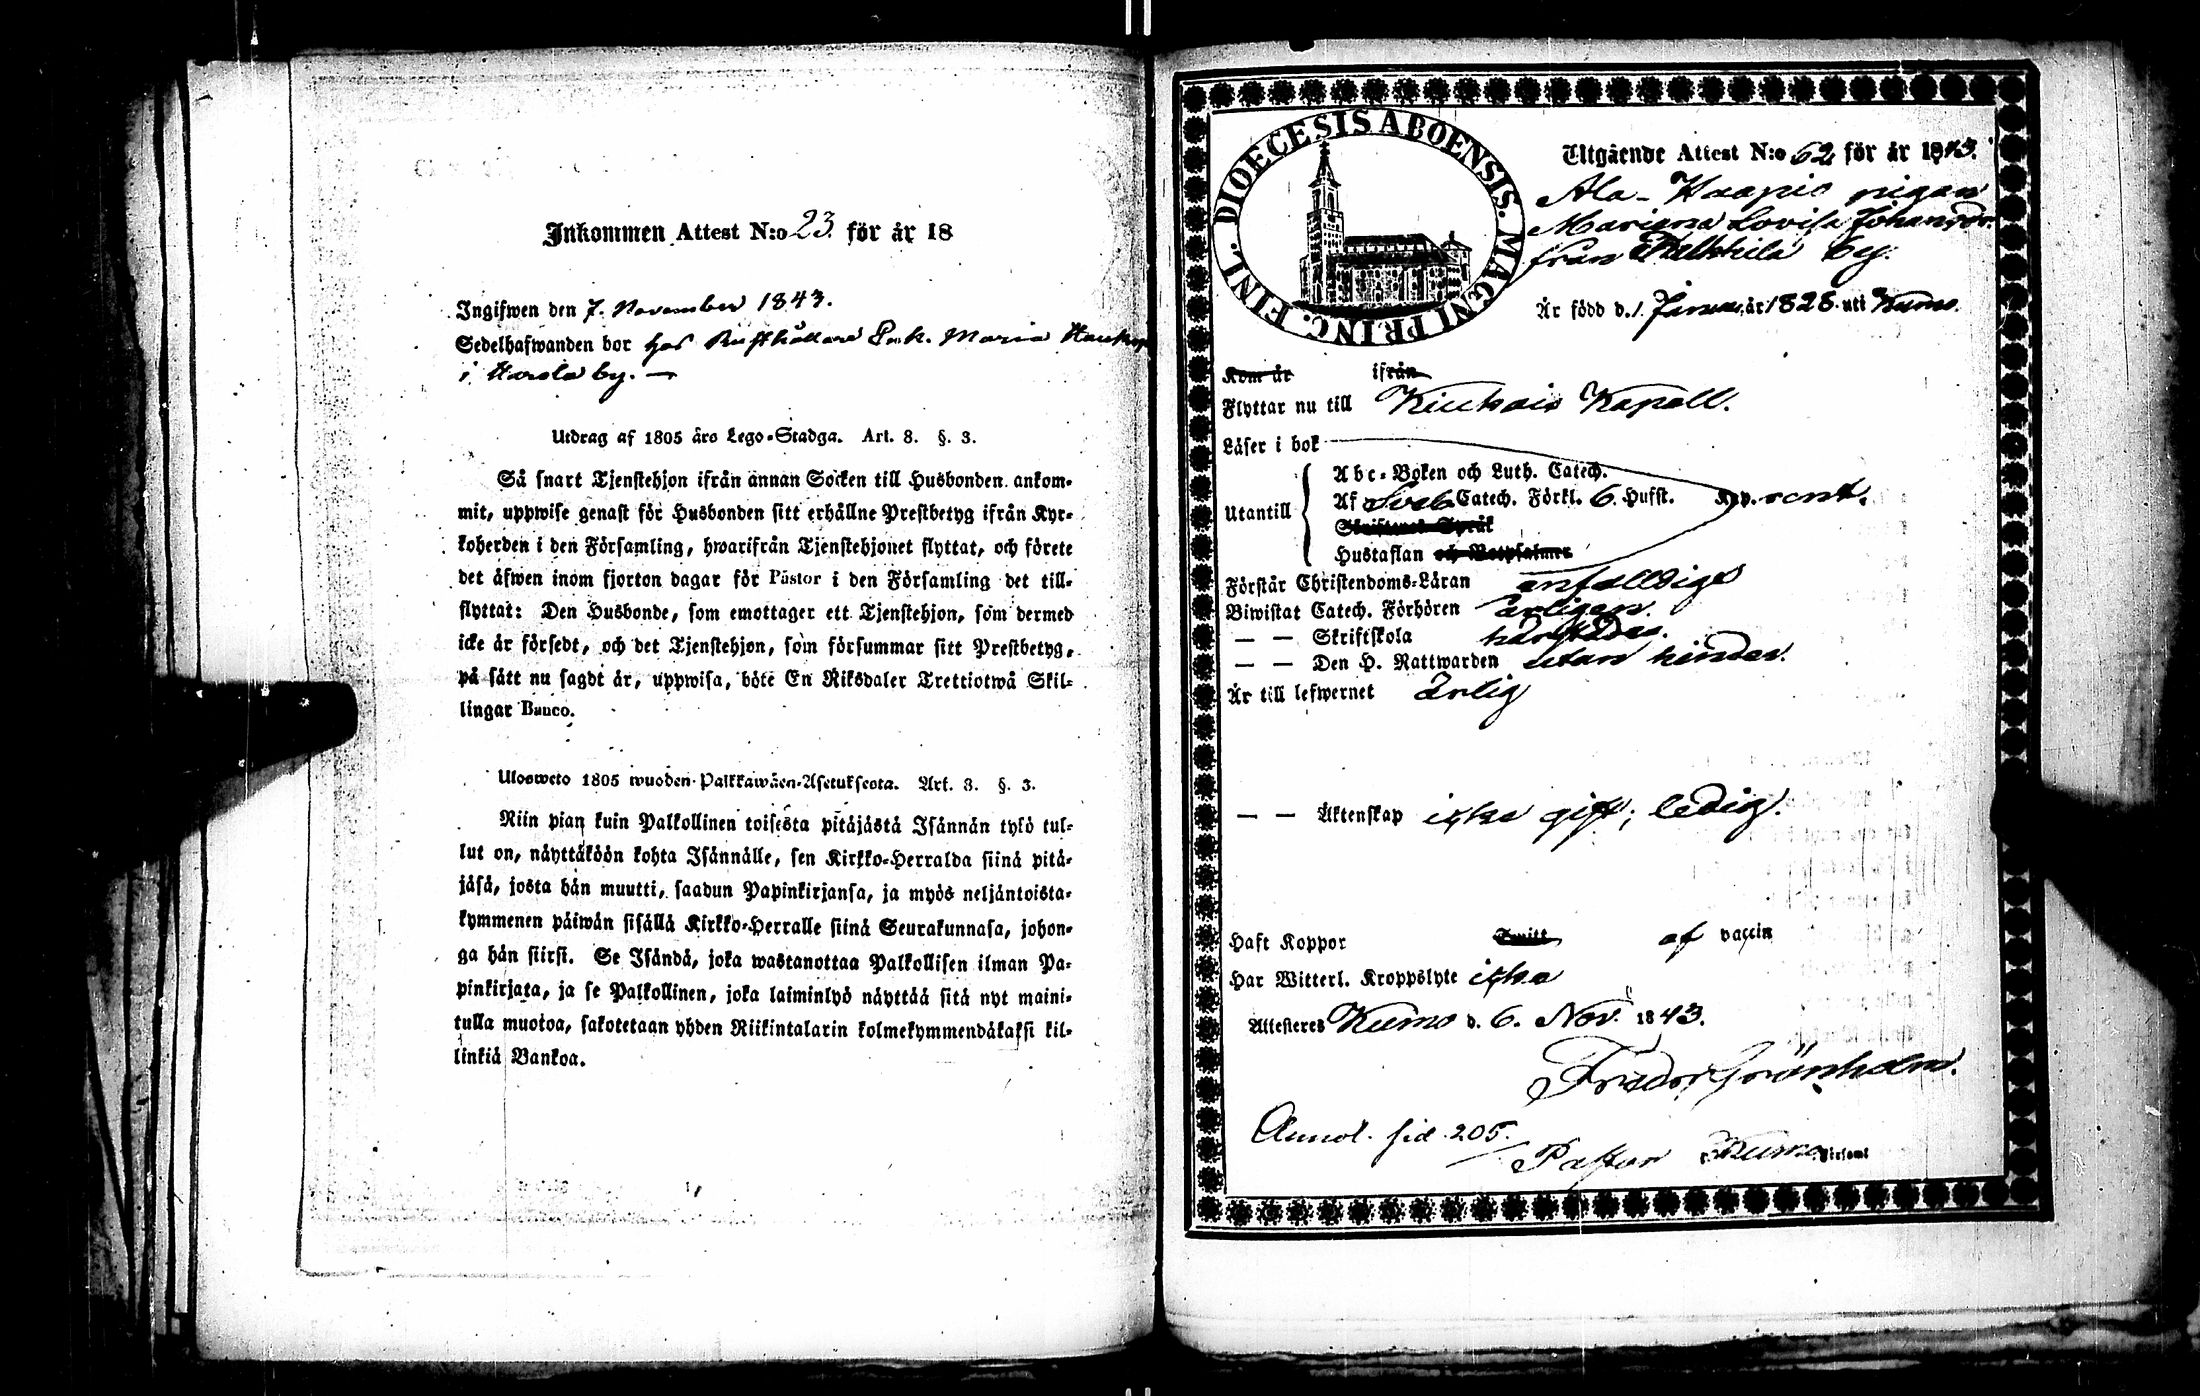 Inkommen Attest N:o 23. för år 18
Ingifwen den 7. November 1843.
Sedelhafwanden bor hos Rusthållare Enk. Maria
i Harola by. —
Utdrag af 1805 års Lego-Stadga. Art. 8. §. 3.
Så snart Tjenstehjon ifrån annan Socken till Husbonden ankom-
mit, uppwise genast för Husbonden sitt erhållne Prestbetyg ifrån Kyr-
koherden i den Församling, hwarifrån Tjenstehjonet flyttat, och förete
det äfwen inom fjorton dagar för Pastor i den Församling det till-
flyttat: Den Husbonde, som emottager ett Tjenstehjon, som dermed
icke är försedt, och det Tjenstehjon, som försummar sitt Prestbetyg,
på sätt nu sagdt är, uppwisa, böte En Riksdaler Trettiotwå Skil-
lingar Banco.
Ulosweto 1805 wuoden Palkkawäen-Asetuksesta. Art. 8. §. 3.
Niin pian kuin Palkollinen toisesta pitäjästä Isännän tykö tul-
lut on, näyttäköön kohta Isännälle, sen Kirkko-Herralda siinä pitä-
jäsä, josta hän muutti, saadun Papinkirjansa, ja myös neljäntoista-
kymmenen päiwän sisällä Kirkko-Herralle siinä Seurakunnasa, johon-
ga hän siirsi. Se Isändä, joka wastanottaa Palkollisen ilman Pa-
pinkirjata, ja se Palkollinen, joka laiminlyö näyttää sitä nyt maini-
tulla muotoa, sakotetaan yhden Riikintalarin kolmekymmendäkaksi kil-
linkiä Bankoa.
DIOECESIS ABOENSIS. MAGNI PRINC. FINL.
Utgående Attest N:o 62 för år 1843.
Ala-Kaapio pigan
Mariena Lovisa Johansdr.
från by.
Är född d. 1. Januar. år 1828. uti Kumo.
Kom år ifrån
Flyttar nu till Kiukais Kapell.
Läser i bok
Utantill
Abc-Boken och Luth. Catech.
Af Sveb. Catech. Förkl. 6. Hufst. Kap. rent.
Skriftenes Språk
Hustaflan och Botpsalmer
Förstår Christendoms-Läran enfalldigt
Biwistat Catech. Förhören årligen.
— — Skriftskola härstädes.
— — Den H. Nattwarden utan hinder.
Är till lefwernet Ärlig
— — Äktenskap icke gift; ledig.
Haft Koppor Smitt af vaccin
Har Witterl. Kroppslyte icke
Attesteres Kumo d. 6. Nov. 1843.
Fredr Grönholm.
Annot. sid. 205.
Pastor Kumo